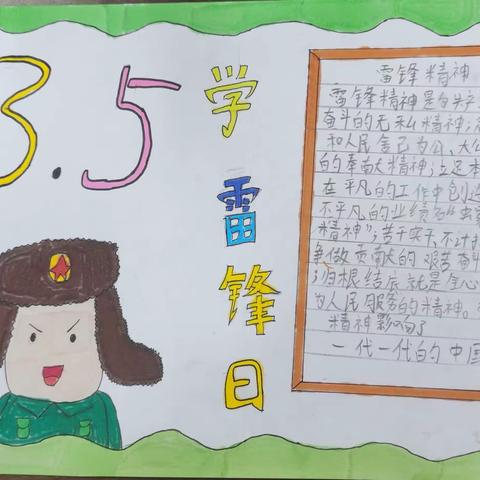 3.5
学雷锋日
雷锋精神
雷锋精神是为共产
奋斗的无私精神;忠
和人民舍己为公、大公
的奉献大精神;立足本
在平凡的工作中创造
不平凡的业绩的"
精神";苦干实干、不计报
争做贡献大的艰苦奋斗
;归根结底就是全心
为人民服务的精神。
精神影响了
一代一代的中国